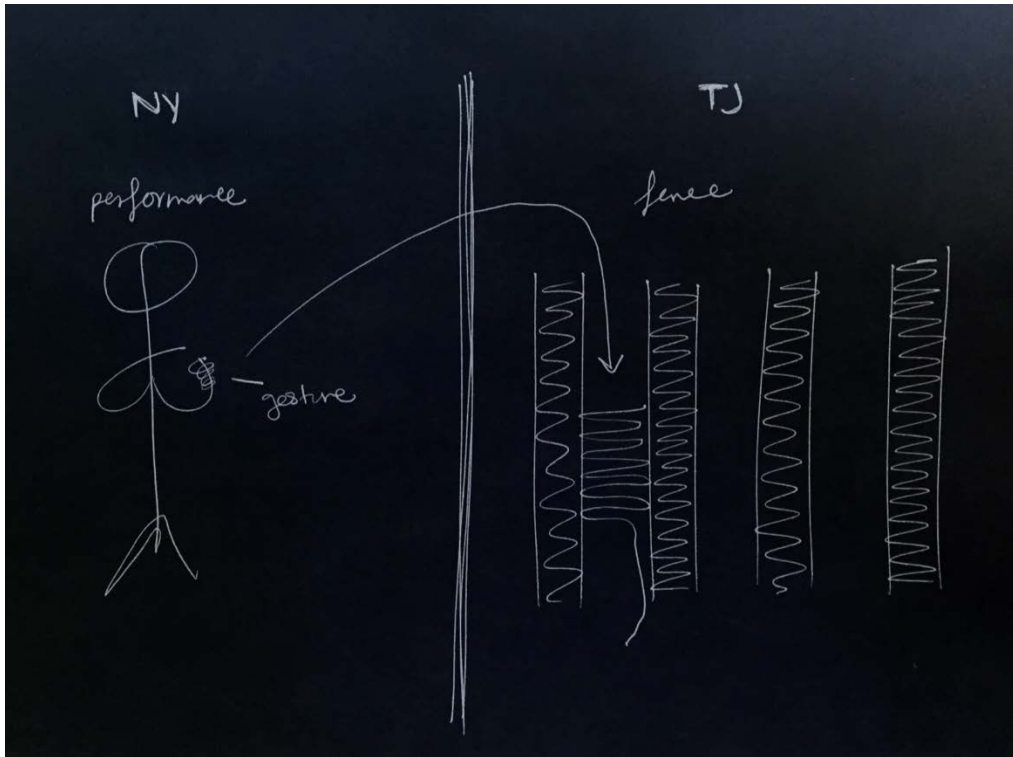 NY
performance
gesture
TJ
fence